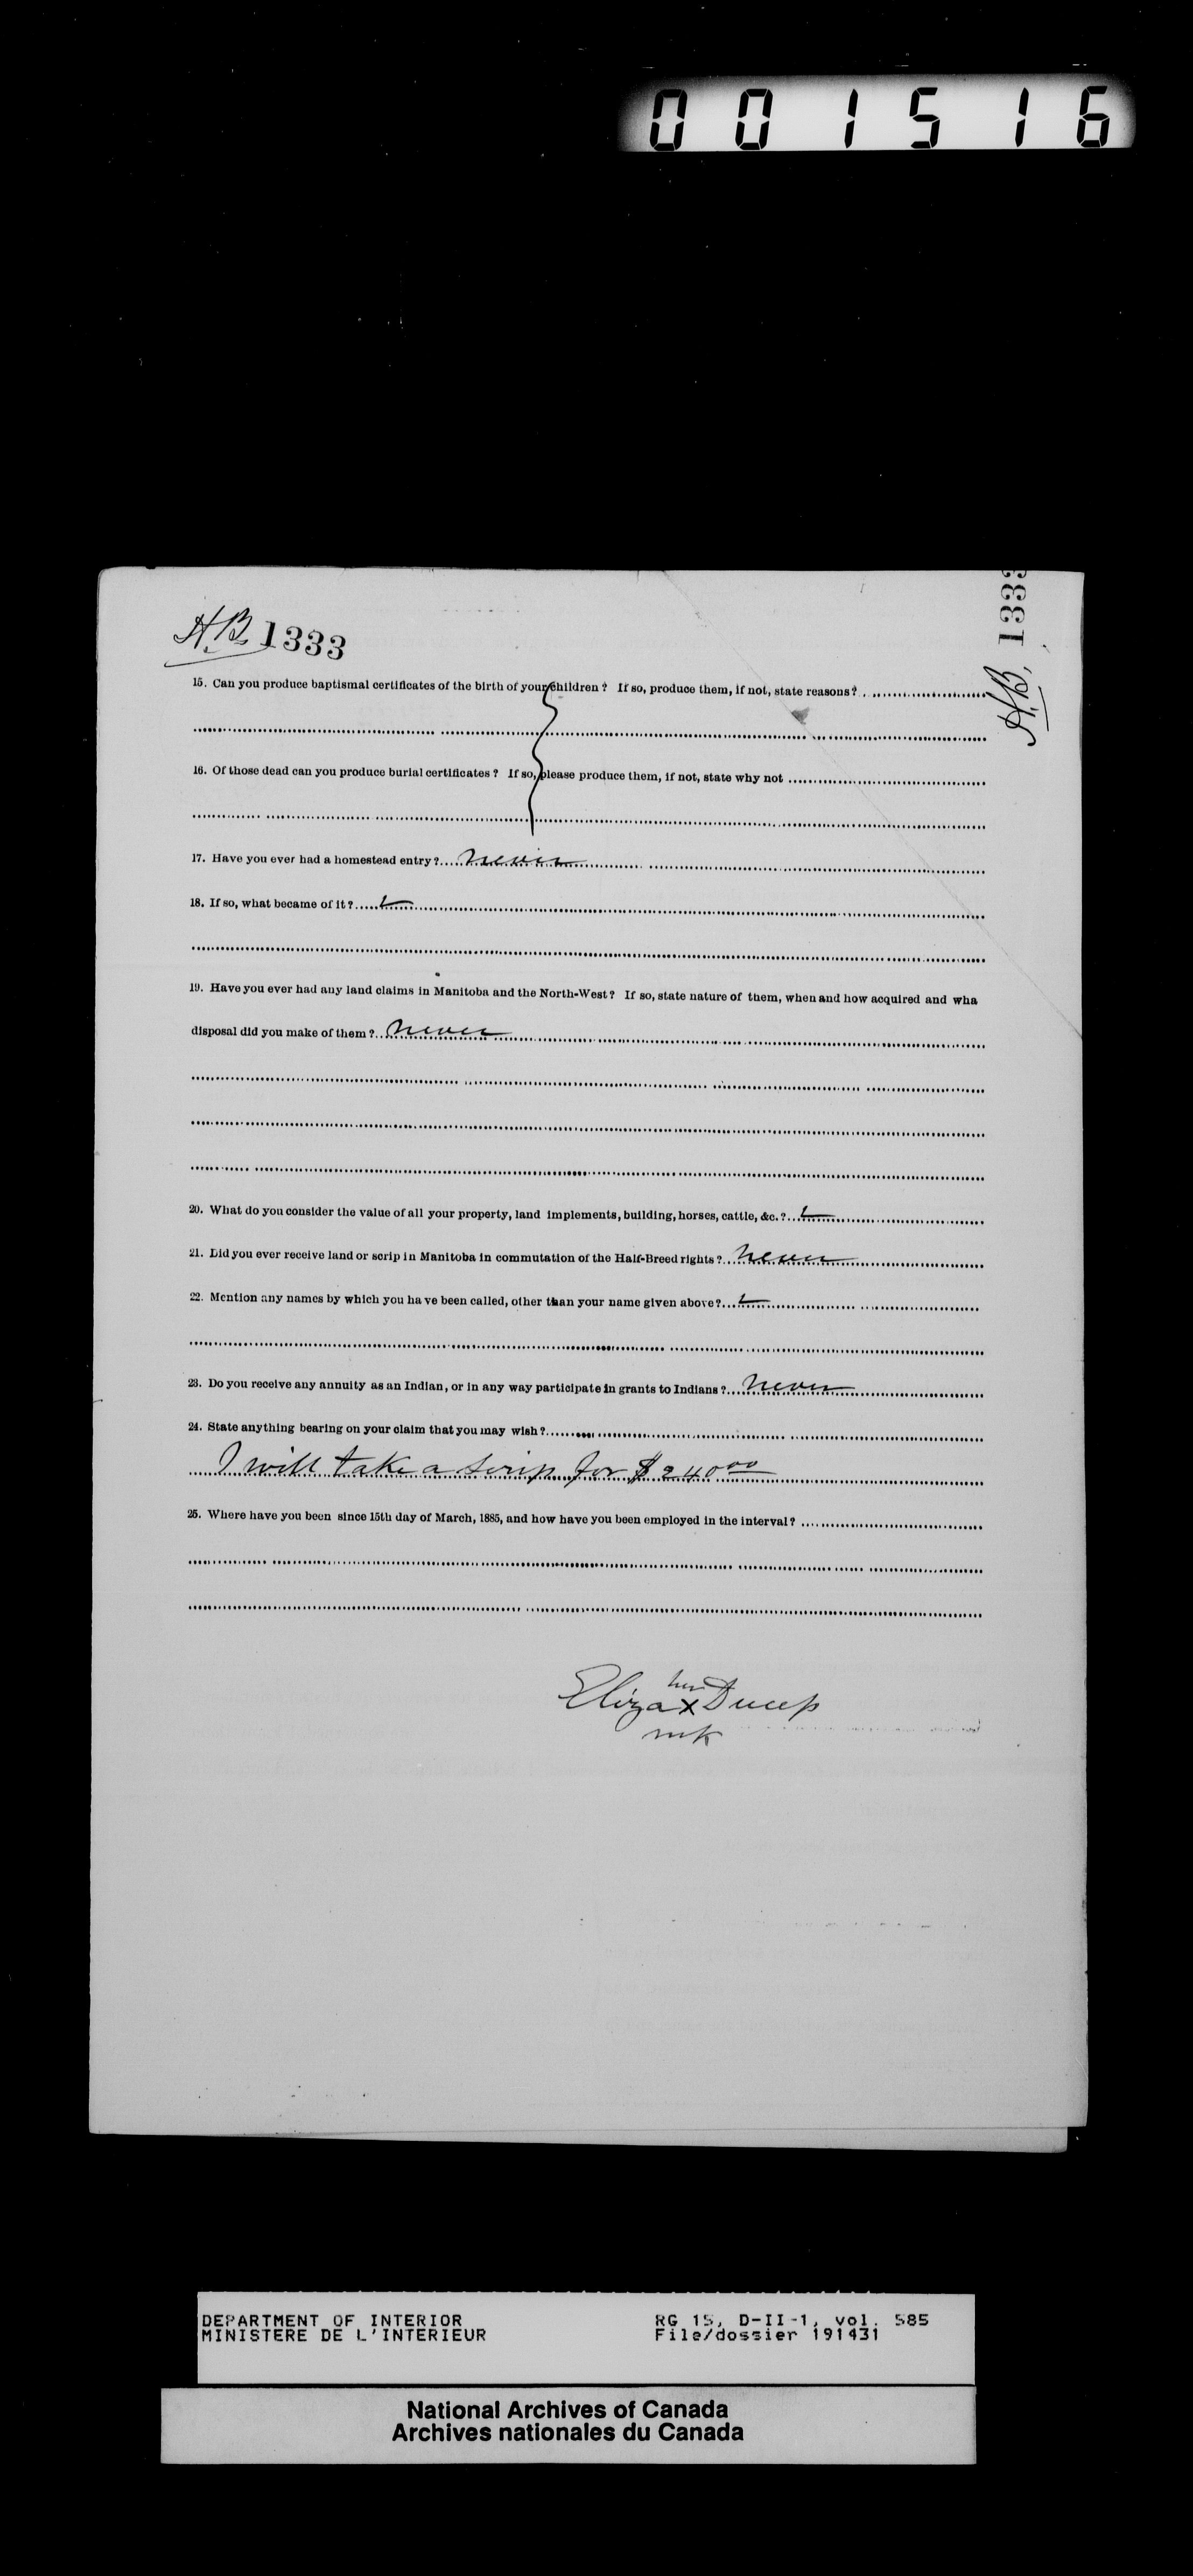 001516
H.B. 1333
H.B. 1333
15. Can you produce baptismal certificates of the birth of your children? If so, produce them, if not, state reasons?
16. Of those dead can you produce burial certificates? If so, please produce them, if not, state why not
17. Have you ever had a homestead entry? never
18. If so, what became of it?
19. Have you ever had any land claims in Manitoba and the North-West? If so, state nature of them, when and how acquired and wha
disposal did you make of them? never
20. What do you consider the value of all your property, land implements, building, horses, cattle, &c.?
21. Did you ever receive land or scrip in Manitoba in commutation of the Half-Breed rights? never
22. Mention any names by which you have been called, other than your name given above?
23. Do you receive any annuity as an Indian, or in any way participate in grants to Indians? never
24. State anything bearing on your claim that you may wish?
I will take a scrip for $240 00
25. Where have you been since 15th day of March, 1885, and how have you been employed in the interval?
her
Eliza x
mk
DEPARTMENT OF INTERIOR RG 15, D-II-1, vol. 585
MINISTERE DE L'INTERIEUR File/dossier 191431
National Archives of Canada
Archives nationales du Canada